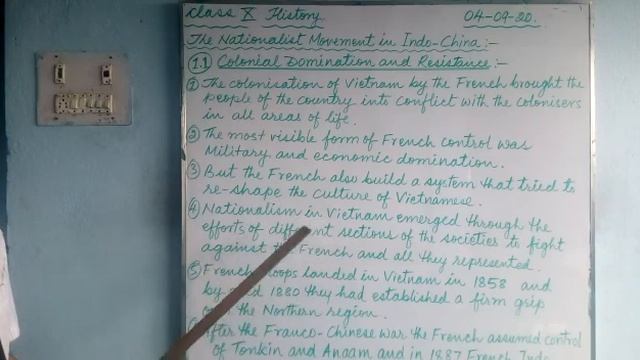 Class X History 04-09-20.
The Nationalist Movement in Indo-China:-
1.1 Colonial Domination and Resistance:-
① The colonisation of Vietnam by the French brought the
people of the country into conflict with the colonisers
in all areas of life.
② The most visible form of French control was
Military and economic domination.
③ But the French also build a system that tried to
re-shape the culture of Vietnamese.
④ Nationalism in Vietnam emerged through the
efforts of different sections of the societies to fight
against the French and all they represented.
⑤ French troops landed in Vietnam in 1858 and
by mid 1880 they had established a firm grip
the Northern region.
After the Franco-Chinese war the French assumed control
of Tonkin and Anaam and in 1887 French Indo